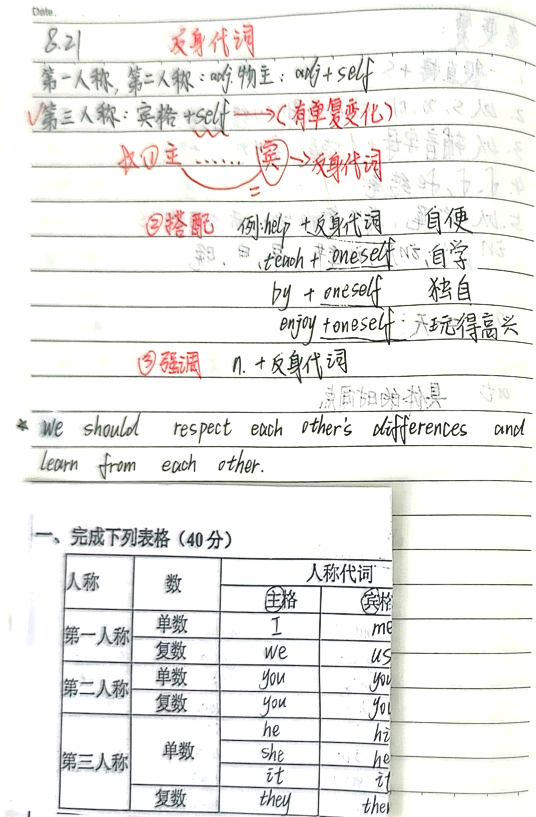 Date.
8.21 反身代词
第一人称, 第二人称: adj.物主: adj + self
√第三人称: 宾格 + self →(有单复变化)
☆① 主 …… 宾 → 反身代词
=
②搭配 例: help + 反身代词 自便
teach + oneself 自学
by + oneself 独自
enjoy + oneself: 玩得高兴
③强调 n. + 反身代词
* We should respect each other's differences and
learn from each other.
一、完成下列表格（40分）
人称 数 人称代词
主格 宾格
第一人称 单数 I me
复数 we us
第二人称 单数 you you
复数 you you
第三人称 单数 he hi
she he
it it
复数 they the